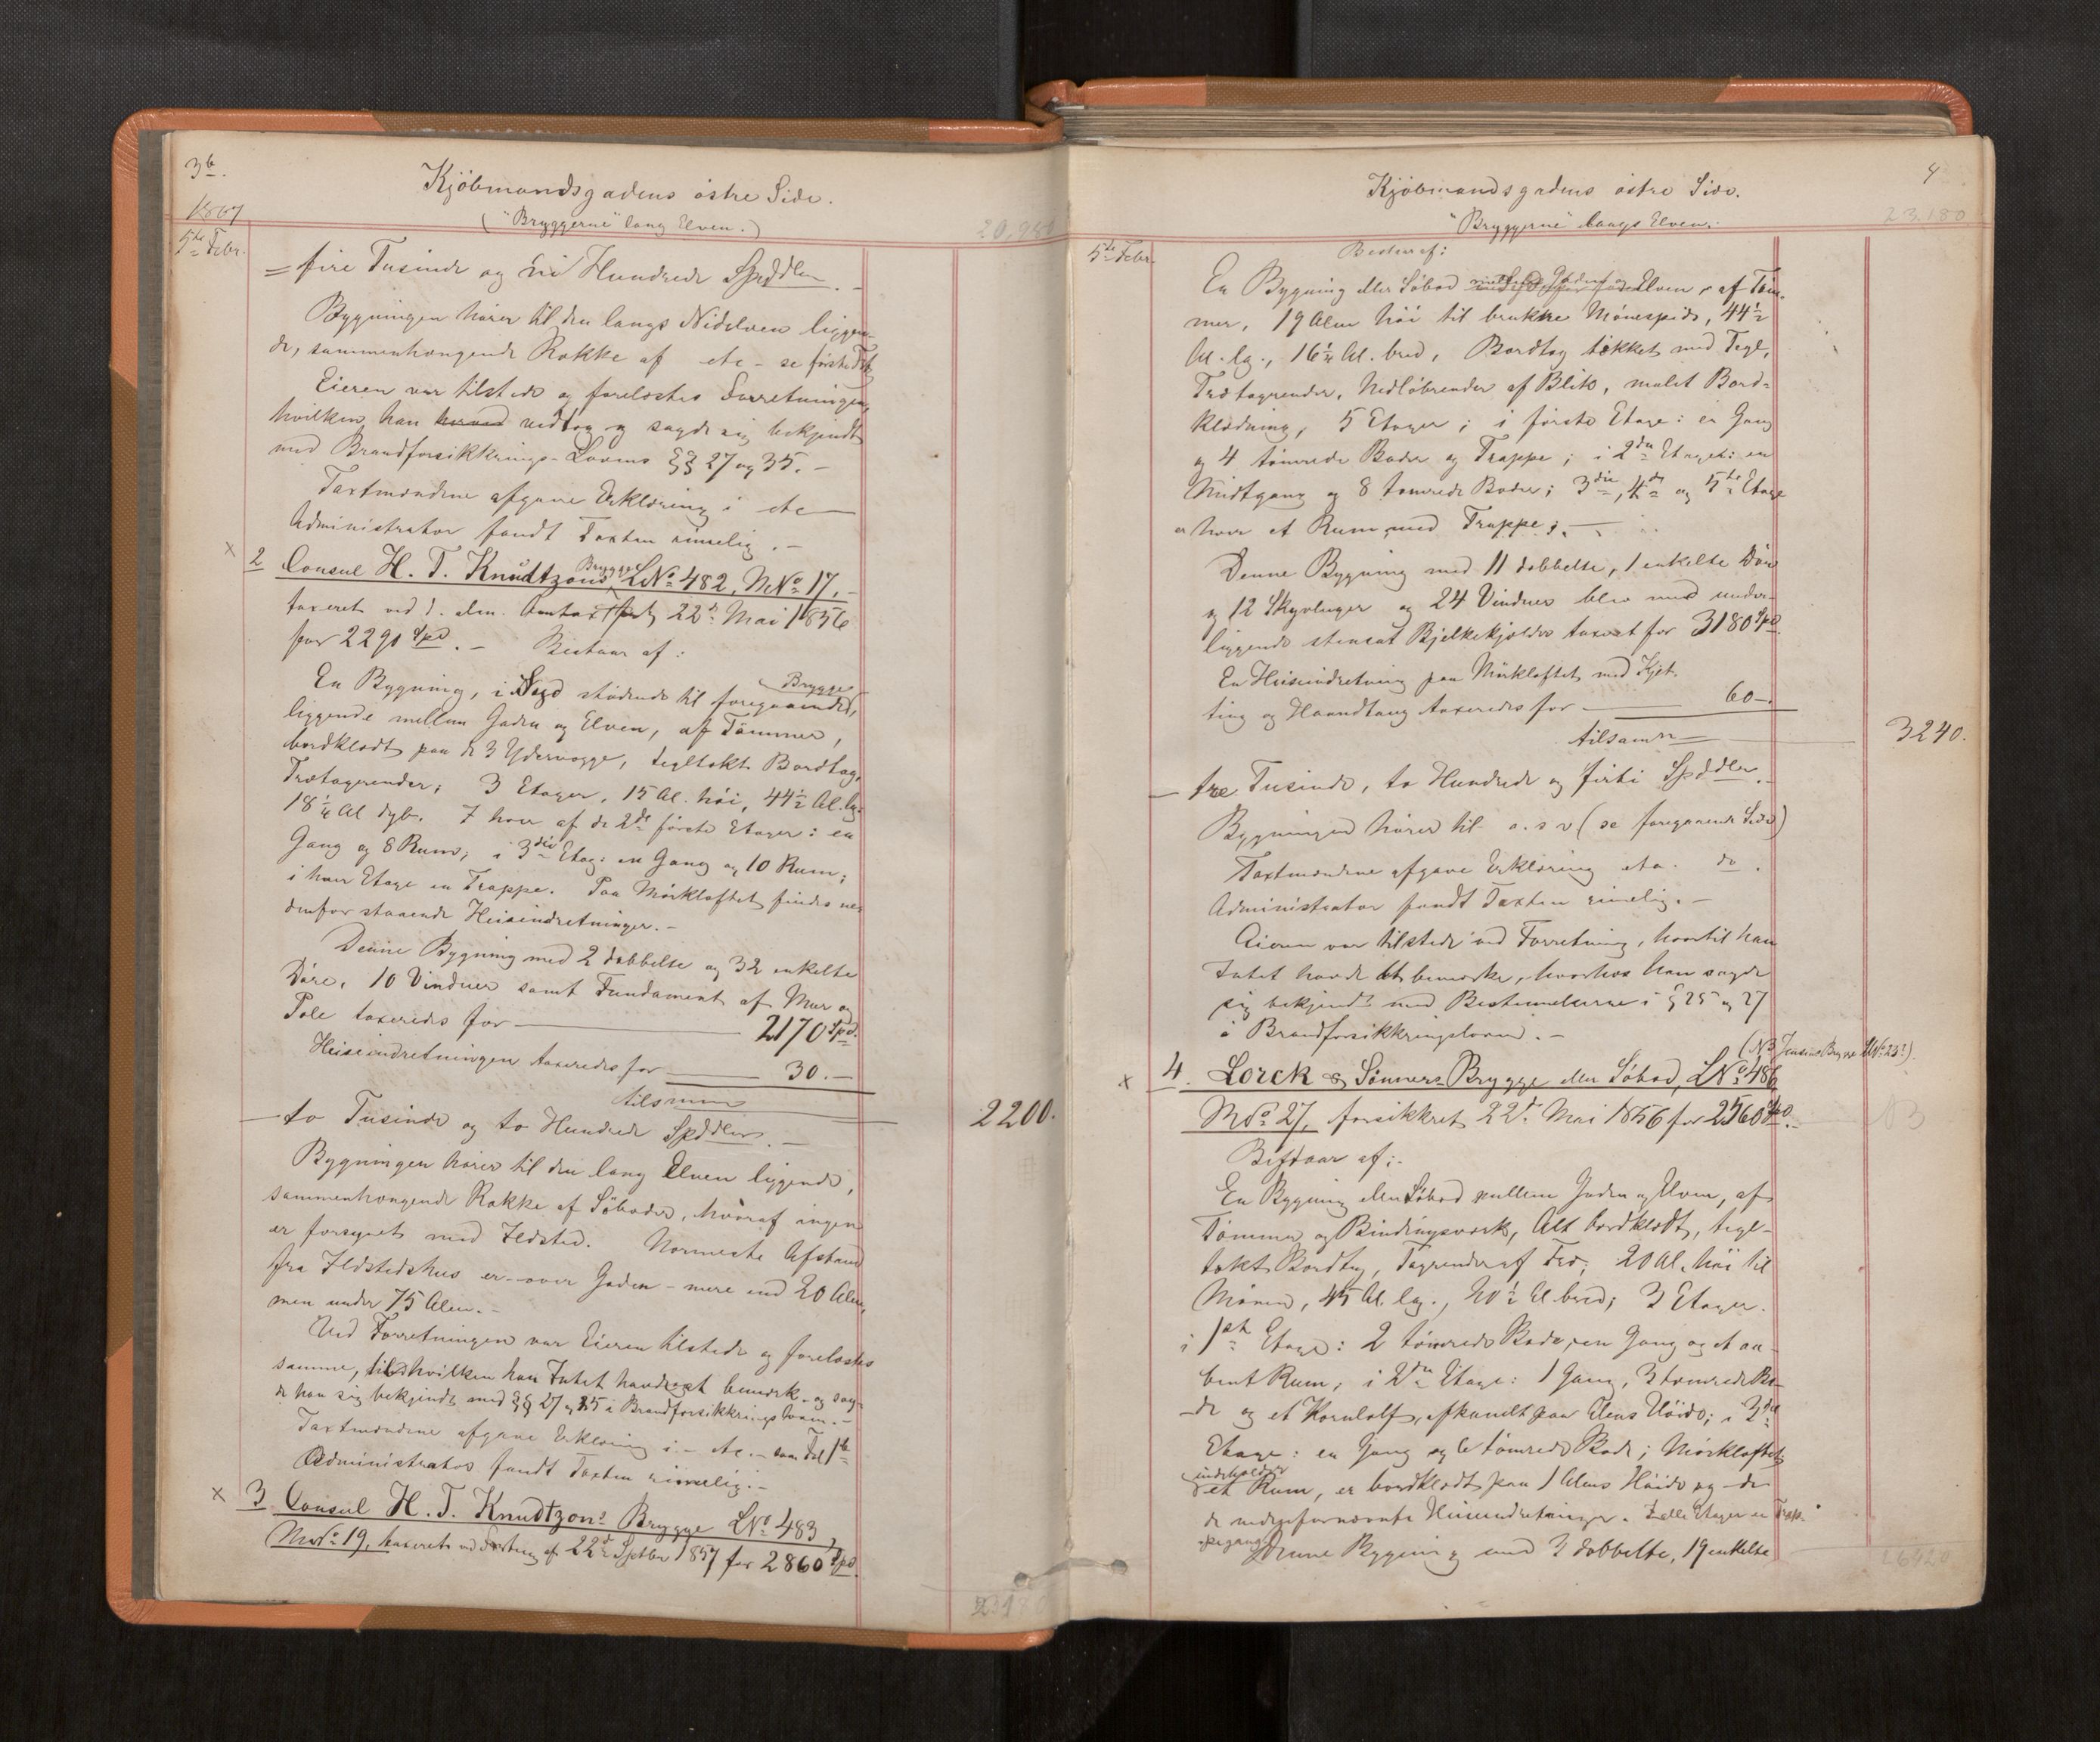 3b.
Kjöbmandsgadens östre Side.
1867
("Bryggerne" lang Elven.)
20,980
5te Febr.
= fire Tusinde og ni Hundrede Spddlr. -
Bygningen hører til den langs Nidelven liggen-
de, sammenhængende Række af etc - se første
Eieren var tilstede og forelæstes Forretningen,
hvilken han herved vedtog og sagde sig bekjendt
med Brandforsikkrings-Lovens §§ 27 og 35. -
Taxtmændene afgave Erklæring i etc
Administrator fandt Taxten rimelig. -
x 2 Consul H. T. Knudtzons Brygge LNo 482, MNo 17. -
taxeret ved d. alm. Omtaxt 22de Mai 1856
for 2290 Spd. - Bestaar af:
En Bygning, i Syd stødende til foregaaende Brygge,
liggende mellem Gaden og Elven, af Tömmer,
bordklædt paa de 3 Ydervægge, tegltækt Bordtag,
Trætagrender; 3 Etager, 15 Al. høi, 44½ Al. lg.
18¼ Al dyb. I hver af de 2de første Etager: en
Gang og 8 Rum; i 3die Etag: en Gang og 10 Rum;
i hver Etage en Trappe. Paa Mørkloftet findes ne-
denfor staaende Heiseindretninger. -
Denne Bygning med 2 dobbelte og 32 enkelte
Döre, 10 Vinduer samt Fundament af Mur og
Pæle taxeredes for 2170 Spd.
Heiseindretningen taxeredes for 30. -
tilsammen
- to Tusinde og to Hundrede Spddlr. - 2200.
Bygningen hører til den lang Elven liggende,
sammenhængende Række af Söboder, hvoraf ingen
er forsynet med Ildsted. Nærmeste Afstand
fra Ildstedshus er - over Gaden - mere end 20 Alen,
men under 75 Alen. -
Ved Forretningen var Eieren tilstede og forelæstes
samme, til hvilken han Intet havde at bemærk. og sag-
de han sig bekjendt med §§ 27 og 35 i Brandforsikkringsloven. -
Taxtmændene afgave Erklæring i - etc. - som Fol 1b
Administrator fandt Taxten rimelig. -
x 3 Consul H. T. Knudtzons Brygge LNo 483,
MNo 19, taxeret ved Forretng af 22de Septbr 1857 for 2860 Spd.
4
Kjöbmandsgadens östre Side.
"Bryggerne" langs Elven.
23.180
5te Febr.
Bestaar af:
En Bygning eller Søbod mellem Gaden og Elven, af Töm-
mer, 19 Alen høi til brukne Mønespids, 44½
Al. lg., 16¼ Al. bred, Bordtag tækket med Tegl,
Trætagrender, Nedløbrender af Blik, malet Bord-
klædning, 5 Etager; i første Etage: en Gang
og 4 tømrede Boder og Trappe; i 2den Etaget: en
Midtgang og 8 tømrede Boder; 3die, 4de og 5te Etage
er hver et Rum med Trappe;
Denne Bygning med 11 dobbelte, 1 enkelte Dör
og 12 Skyvluger og 24 Vinduer blev med under-
liggende stensat Bjelkekjelder taxeret for 3180 Spd.
En Heiseindretning paa Mörkloftet med Kjet-
ting og Haandtaug taxeredes for 60 -.
tilsamn 3240.
- tre Tusinde, to Hundrede og firti Spddlr. -
Bygningen hører til o. s v (se foregaaende Side)
Taxtmændene afgave Erklæring etc. do.
Administrator fandt Taxten rimelig. -
Eieren var tilstede ved Forretning, hvortil han
Intet havde at bemærke, hvorhos han sagde
sig bekjendt med Bestemmelserne i § 25 og 27
i Brandforsikkringsloven. -
(NB Jensens Brygge MNo 23?).
x 4. Lorck & Sönners Brygge eller Söbod, LNo 486
MNo 27, forsikkret 22de Mai 1856 for 2560 Spd. -
NB
Bestaar af:
En Bygning eller Søbod mellem Gaden og Elven, af
Tömmer og Bindingsværk, Alt bordklædt, tegl-
tækt Bordtag, Tagrender af Træ; 20 Al. høi til
Mønen, 45 Al. lg., 20½ Al. bred; 3 Etager.
i 1ste Etage: 2 tømrede Boder, en Gang og et aa-
bent Rum; i 2den Etage: 1 Gang, 3 tømrede Bo-
de og et Kornloft, afkandt paa Alens Høide; i 3die
Etage: en Gang og 6 tømrede Bode; Mørkloftet
indeholder et Rum, er bordklædt paa 1 Alens Høide og de
de nedenfornævnte Heiseindretninger. I alle Etager er Trap-
pegange
Denne Bygning med 3 dobbelte, 19 enkelte
26420